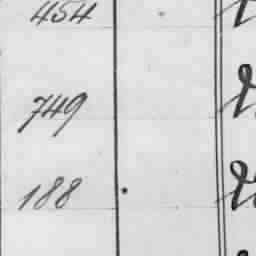 454
749
188